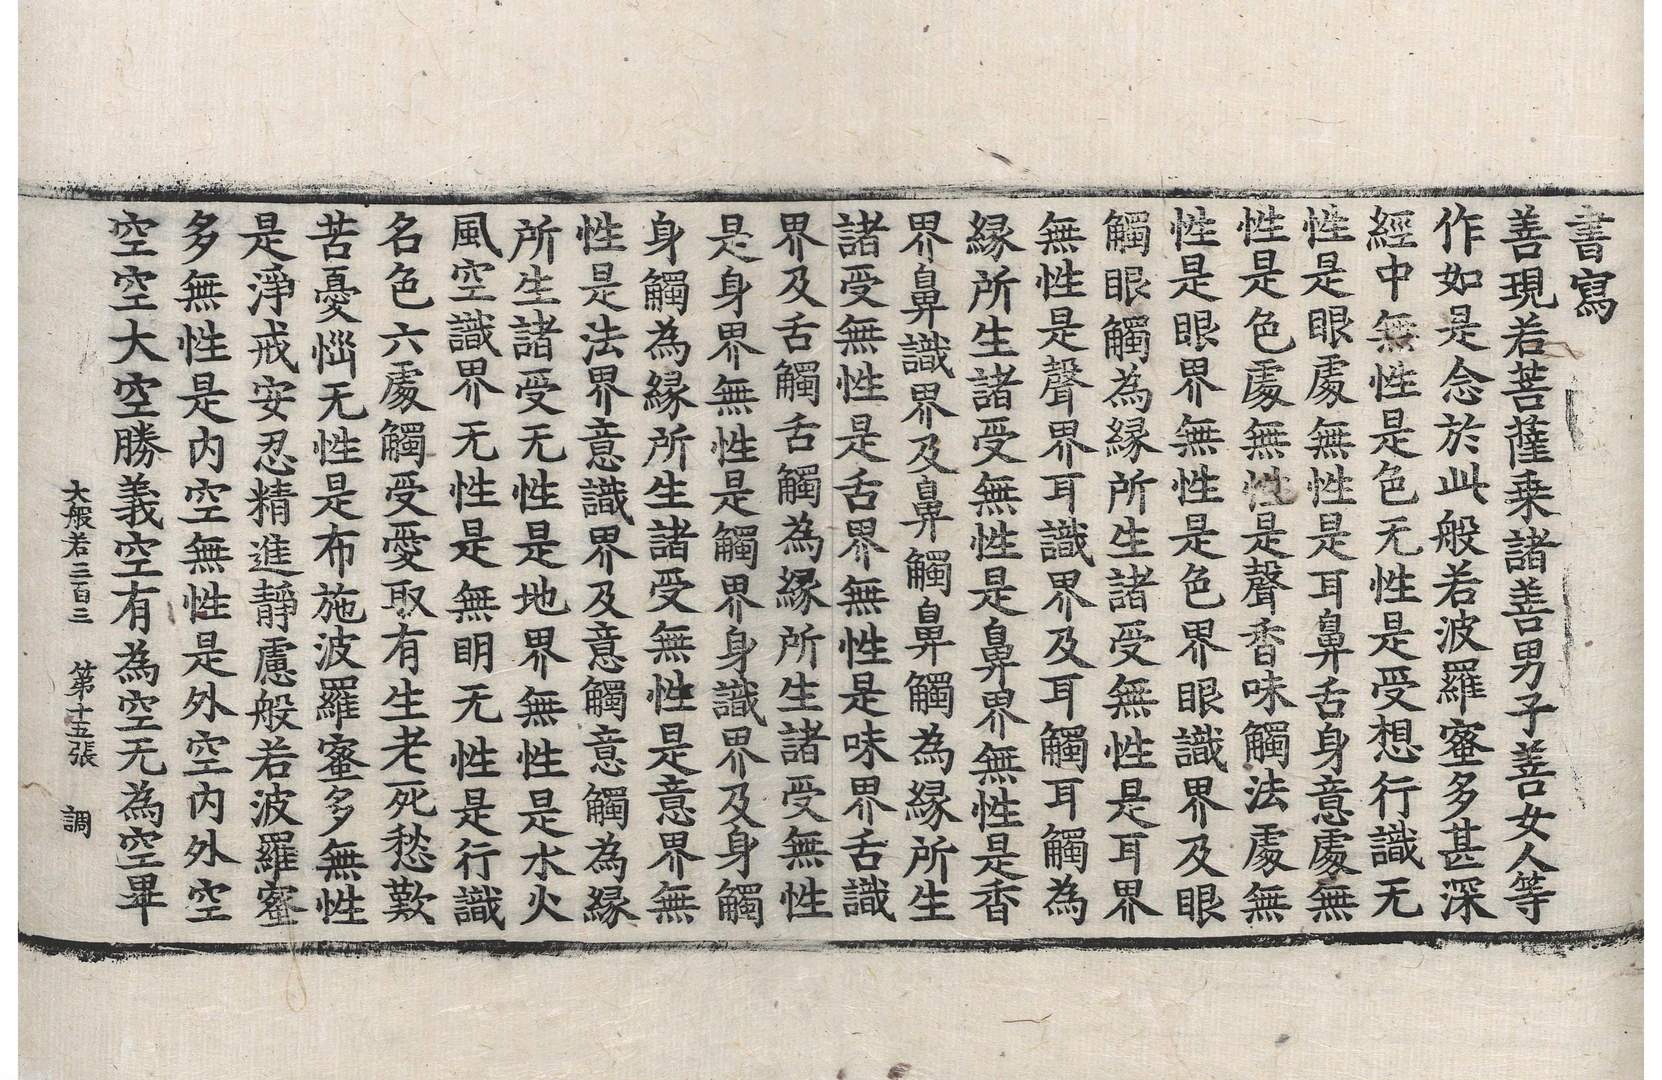 書寫
善現若菩薩乗諸善男子善女人等
作如是念於此般若波羅蜜多甚深
經中無性是色无性是受想行識无
性是眼處無性是耳鼻舌身意處無
性是色處無性是聲香味觸法處無
性是眼界無性是色界眼識界及眼
觸眼觸為縁所生諸受無性是耳界
無性是聲界耳識界及耳觸耳觸為
縁所生諸受無性是鼻界無性是香
界鼻識界及鼻觸鼻觸為縁所生
諸受無性是舌界無性是味界舌識
界及舌觸舌觸為縁所生諸受無性
是身界無性是觸界身識界及身觸
身觸為縁所生諸受無性是意界無
性是法界意識界及意觸意觸為縁
所生諸受无性是地界無性是水火
風空識界无性是無明无性是行識
名色六處觸受愛取有生老死愁歎
苦憂惱无性是布施波羅蜜多無性
是淨戒安忍精進靜慮般若波羅蜜
多無性是內空無性是外空內外空
空空大空勝義空有為空无為空畢
大般若三百三　第十五張　調